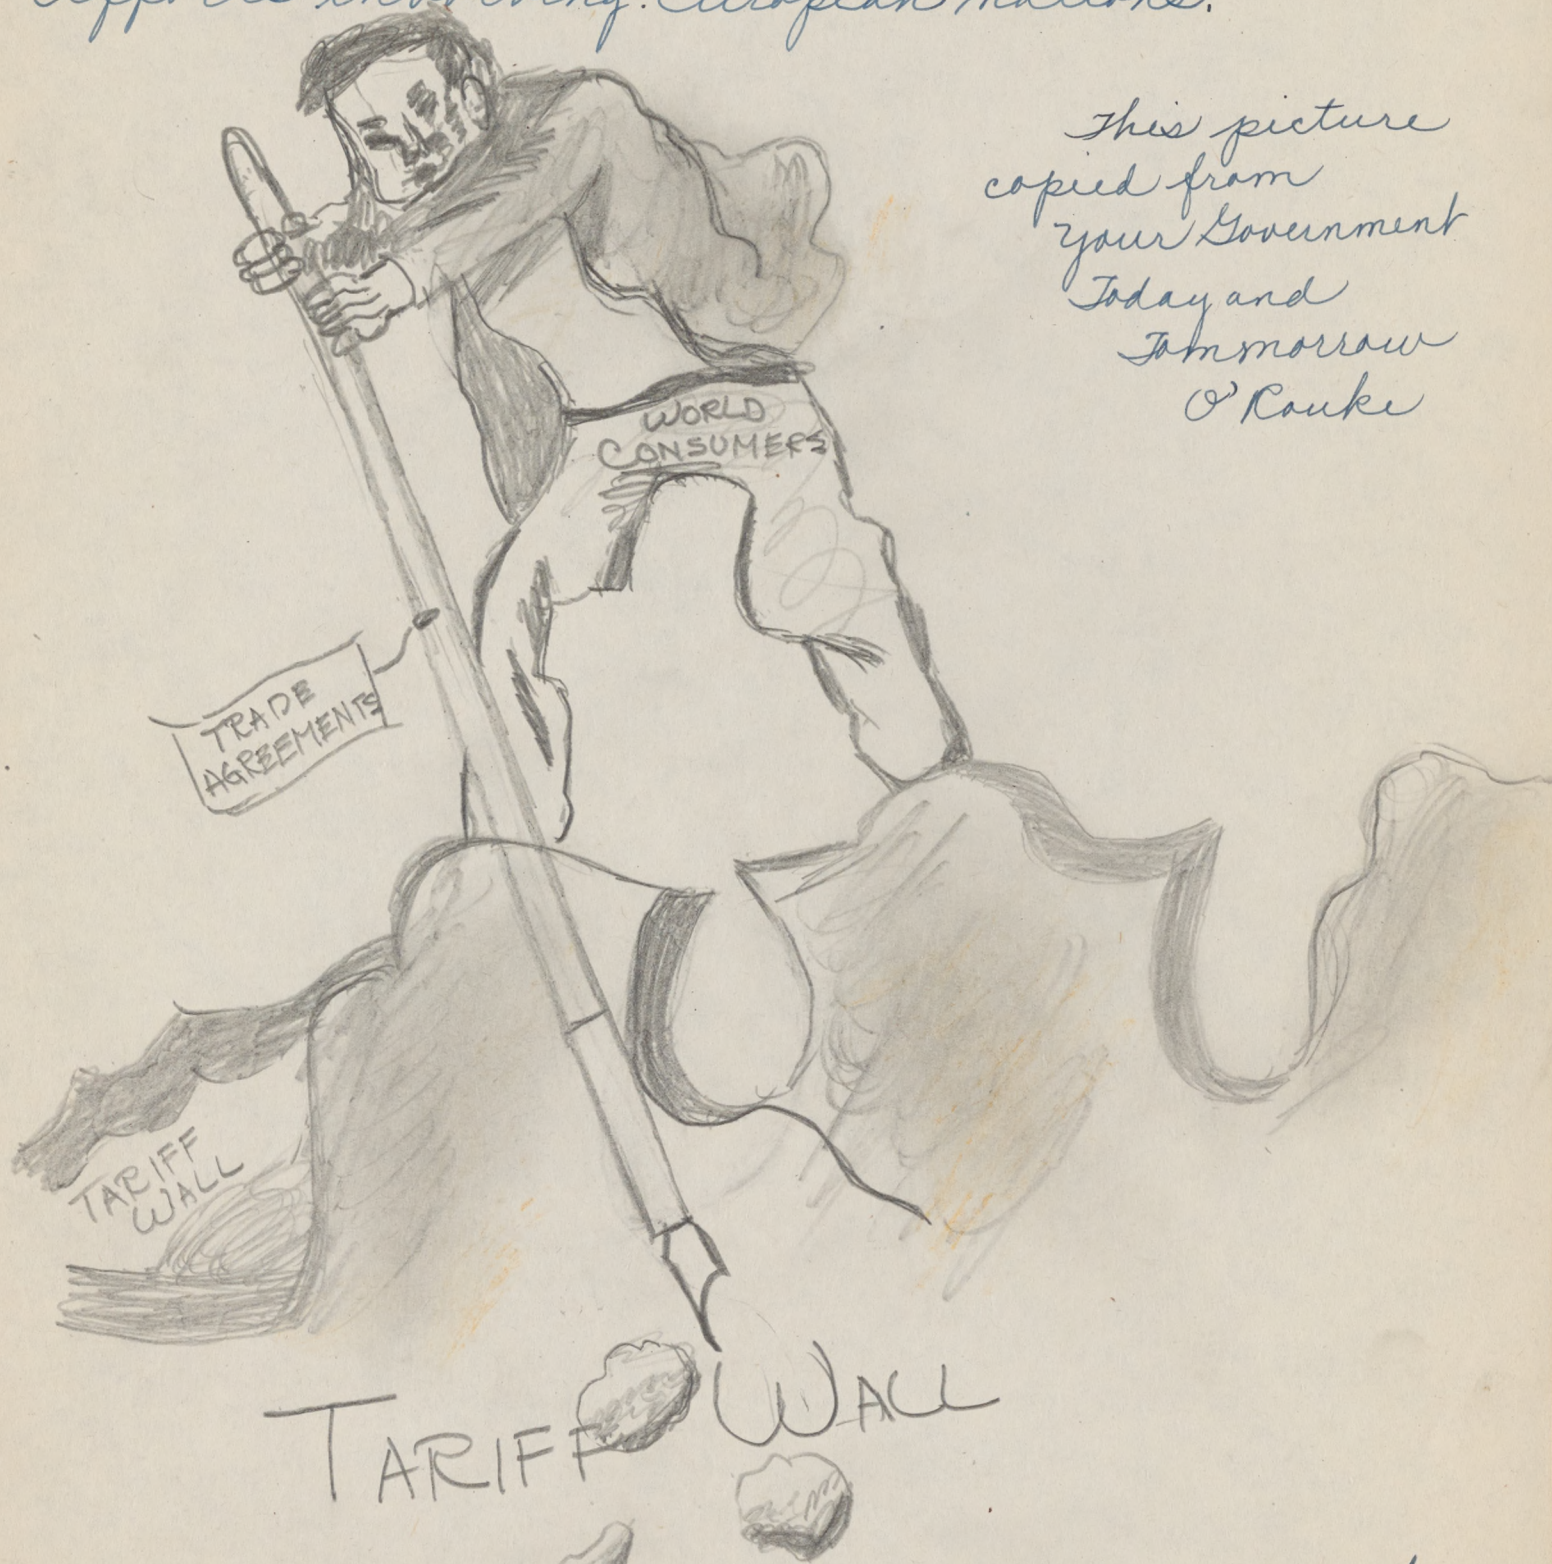 involving European nations.
This picture
copied from
your Government
Today and
Tommorrow
O'Rouke
WORLD
CONSUMERS
TRADE
AGREEMENTS
TARIFF
WALL
TARIFF WALL